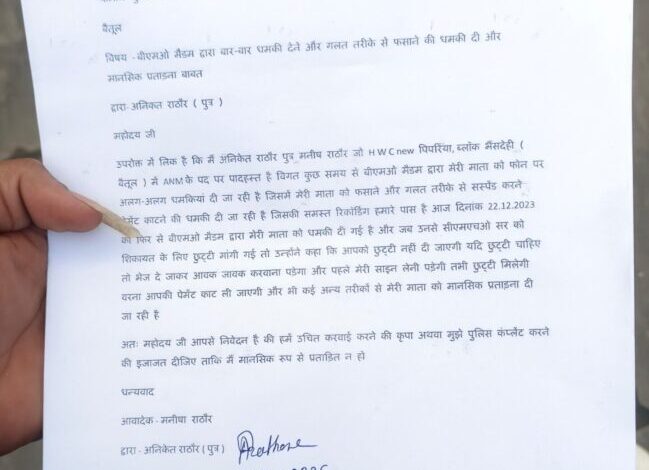 बैतूल
विषय - बीएमओ मैडम द्वारा बार-बार धमकी देने और गलत तरीके से फसाने की धमकी दी और
मानसिक प्रताड़ना बाबत
द्वारा- अनिकेत राठौर ( पुत्र )
महोदय जी
उपरोक्त में लिक है कि मैं अनिकेत राठौर पुत्र मनीष राठौर जो H W C new पिपरिया, ब्लॉक भैंसदेही (
बैतूल ) में ANM के पद पर पादहस्त है विगत कुछ समय से बीएमओ मैडम द्वारा मेरी माता को फोन पर
अलग-अलग धमकियां दी जा रही है जिसमें मेरी माता को फसाने और गलत तरीके से सस्पेंड करने
पेमेंट काटने की धमकी दी जा रही है जिसकी समस्त रिकॉर्डिंग हमारे पास है आज दिनांक 22.12.2023
को फिर से बीएमओ मैडम द्वारा मेरी माता को धमकी दी गई है और जब उनसे सीएमएचओ सर को
शिकायत के लिए छुट्टी मांगी गई तो उन्होंने कहा कि आपको छुट्टी नहीं दी जाएगी यदि छुट्टी चाहिए
तो भेज दे जाकर आवक जावक करवाना पड़ेगा और पहले मेरी साइन लेनी पड़ेगी तभी छुट्टी मिलेगी
वरना आपकी पेमेंट काट ली जाएगी और भी कई अन्य तरीकों से मेरी माता को मानसिक प्रताड़ना दी
जा रही है
अतः महोदय जी आपसे निवेदन है की हमें उचित करवाई करने की कृपा अथवा मुझे पुलिस कंप्लेंट करने
की इजाजत दीजिए ताकि मैं मानसिक रूप से प्रताड़ित न हो
धन्यवाद
आवादेक - मनीषा राठौर
द्वारा - अनिकेत राठौर ( पुत्र )